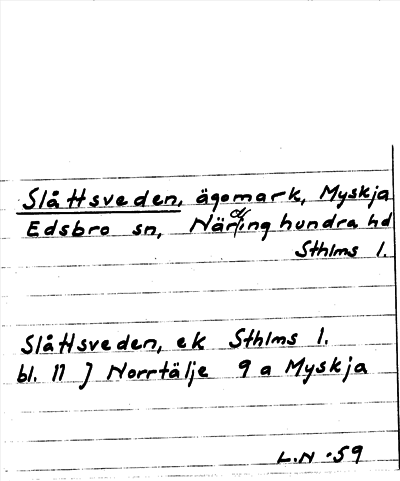 Slåttsveden, ägomark, Myskja
Edsbro sn, Närdinghundra hd
Sthlms l.
Slåttsveden, ek Sthlms l.
bl. 11 J Norrtälje 9 a Myskja
L.N -59